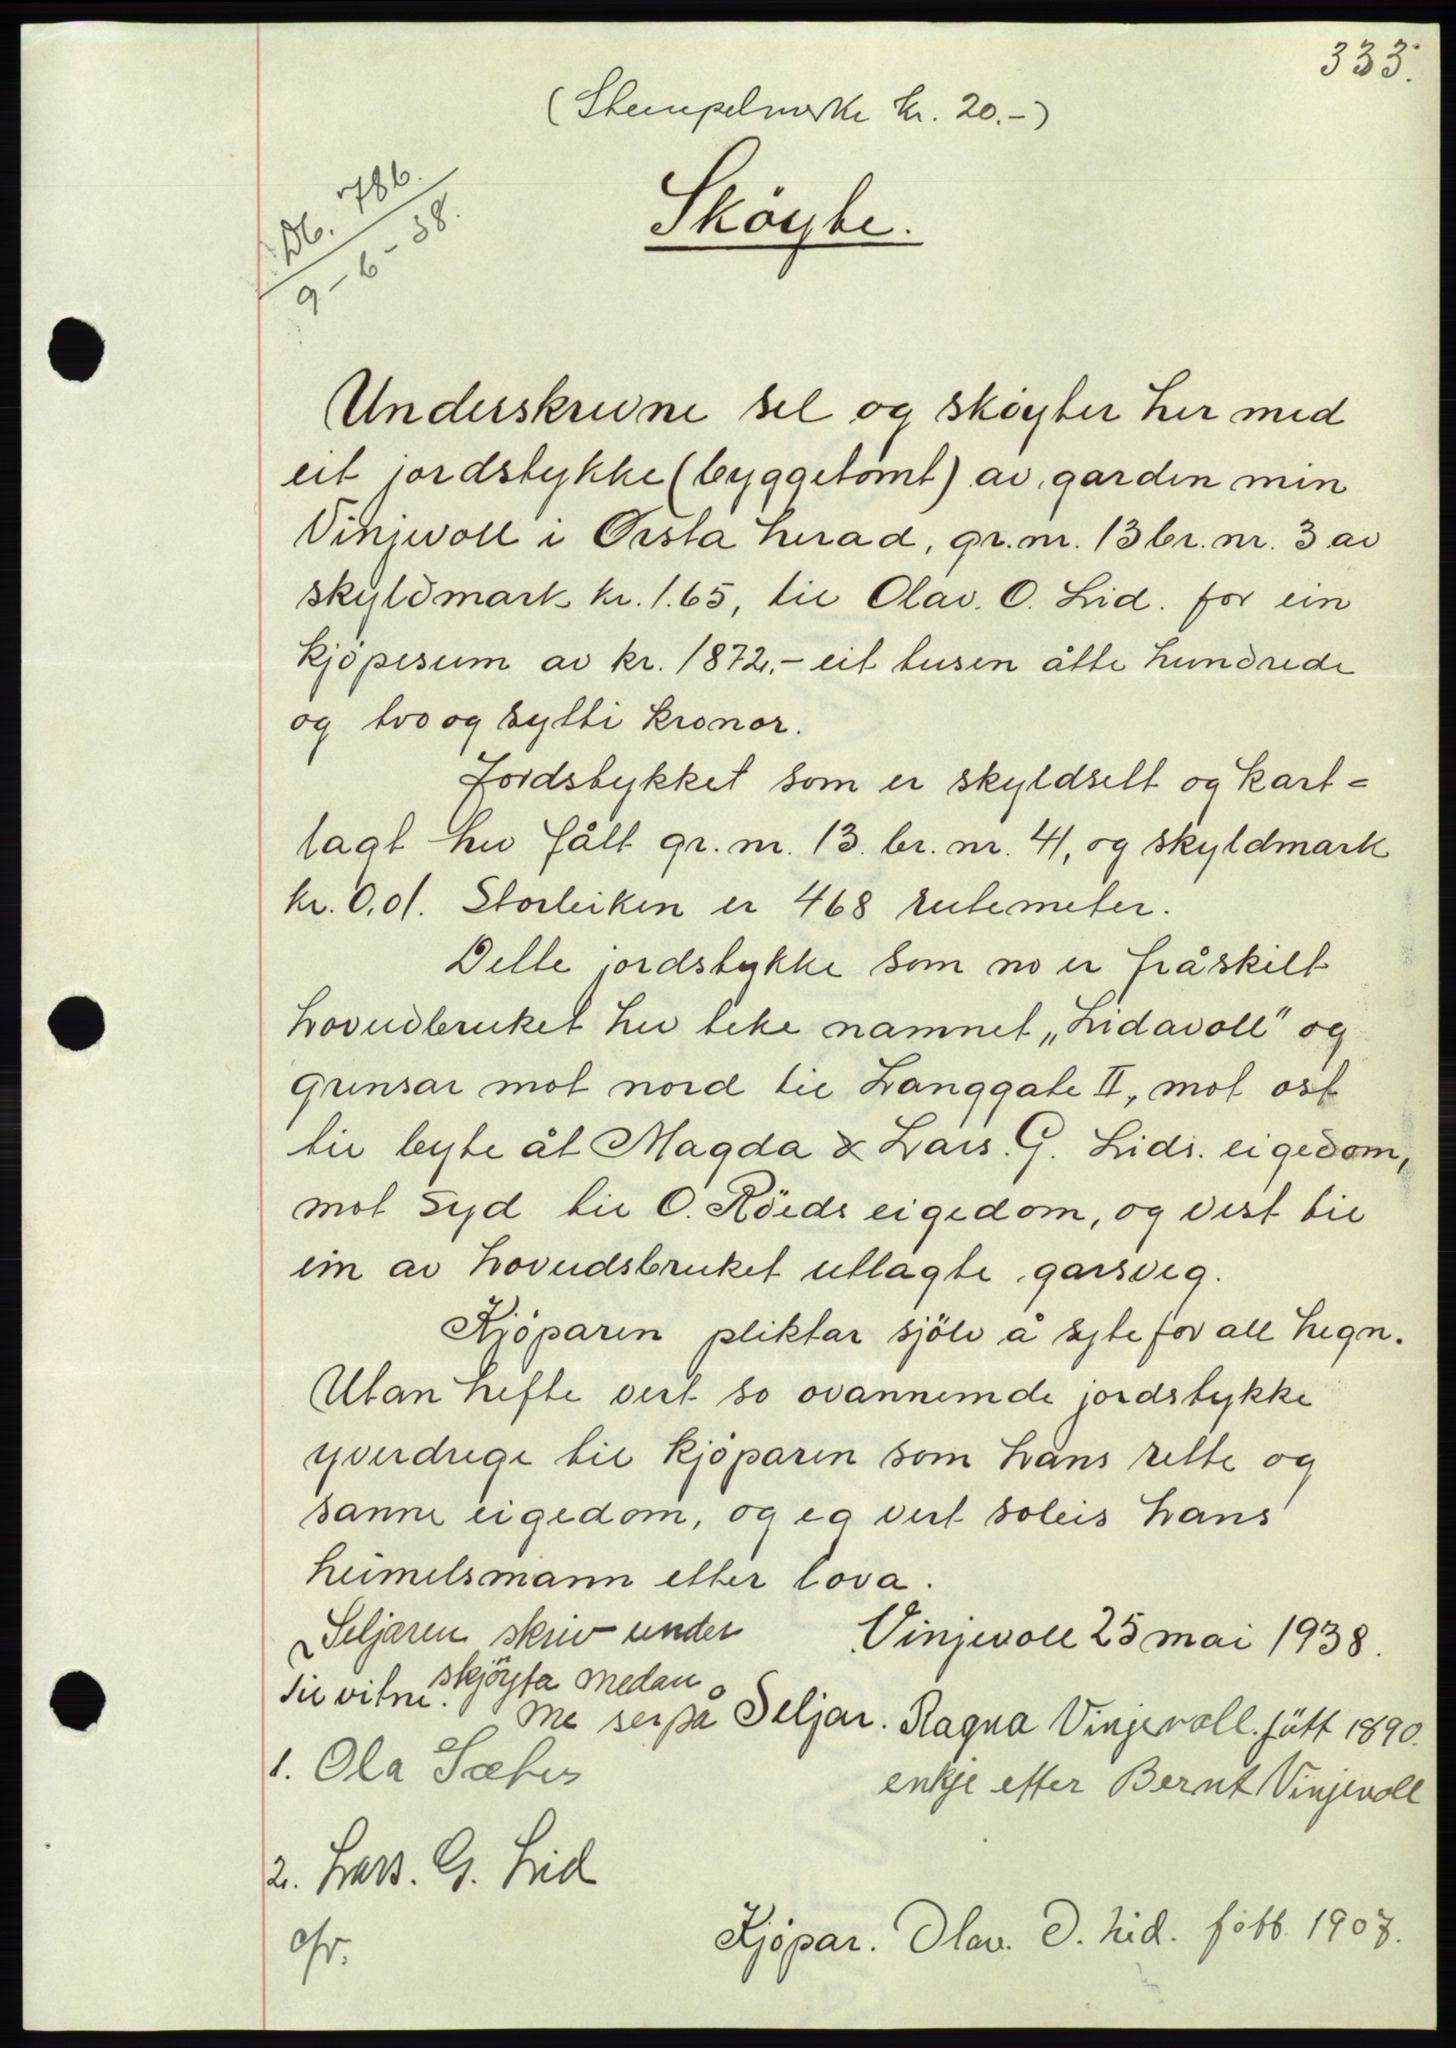 333.
(Stempelmerke kr. 20.-)
Db. 786.
9-6-38.
Sköyte.
Underskrivne sel og sköyter her med
eit jordstykke (byggetomt) av garden min
Vinjevoll i Ørsta herad, gr.nr. 13 br.nr. 3 av
skyldmark kr. 1.65, til Olav. O. Lid. for ein
kjöpesum av kr. 1872,- eit tusen åtte hundrede
og tvo og sytti kronor.
Jordstykket som er skyldsett og kart=
lagt hev fått gr.nr. 13. br.nr. 41, og skyldmark
kr. 0,01. Storleiken er 468 rutemeter.
Dette jordstykke som no er fråskilt
hovudbruket hev teke namnet „Lidavoll" og
grensar mot nord til Langgate II, mot ost
til byte åt Magda & Lars. G. Lids. eigedom,
mot syd til O. Röeds eigedom, og vest til
ein av hovudsbruket utlagte garsveg.
Kjöparen pliktar sjölv å syte for all hegn.
Utan hefte vert so ovannemde jordstykke
yverdrege til kjöparen som hans rette og
sanne eigedom, og eg vert soleis hans
heimelsmann etter lova.
Vinjevoll 25 mai 1938.
Seljaren skriv under
skjöyta medan
me ser på
Til vitne.
Seljar. Ragna Vinjevoll. fött 1890.
enkje etter Bernt Vinjevoll
1. Ola
2. Lars. G. Lid
Kjöpar. Olav. O. Lid. fött. 1907.